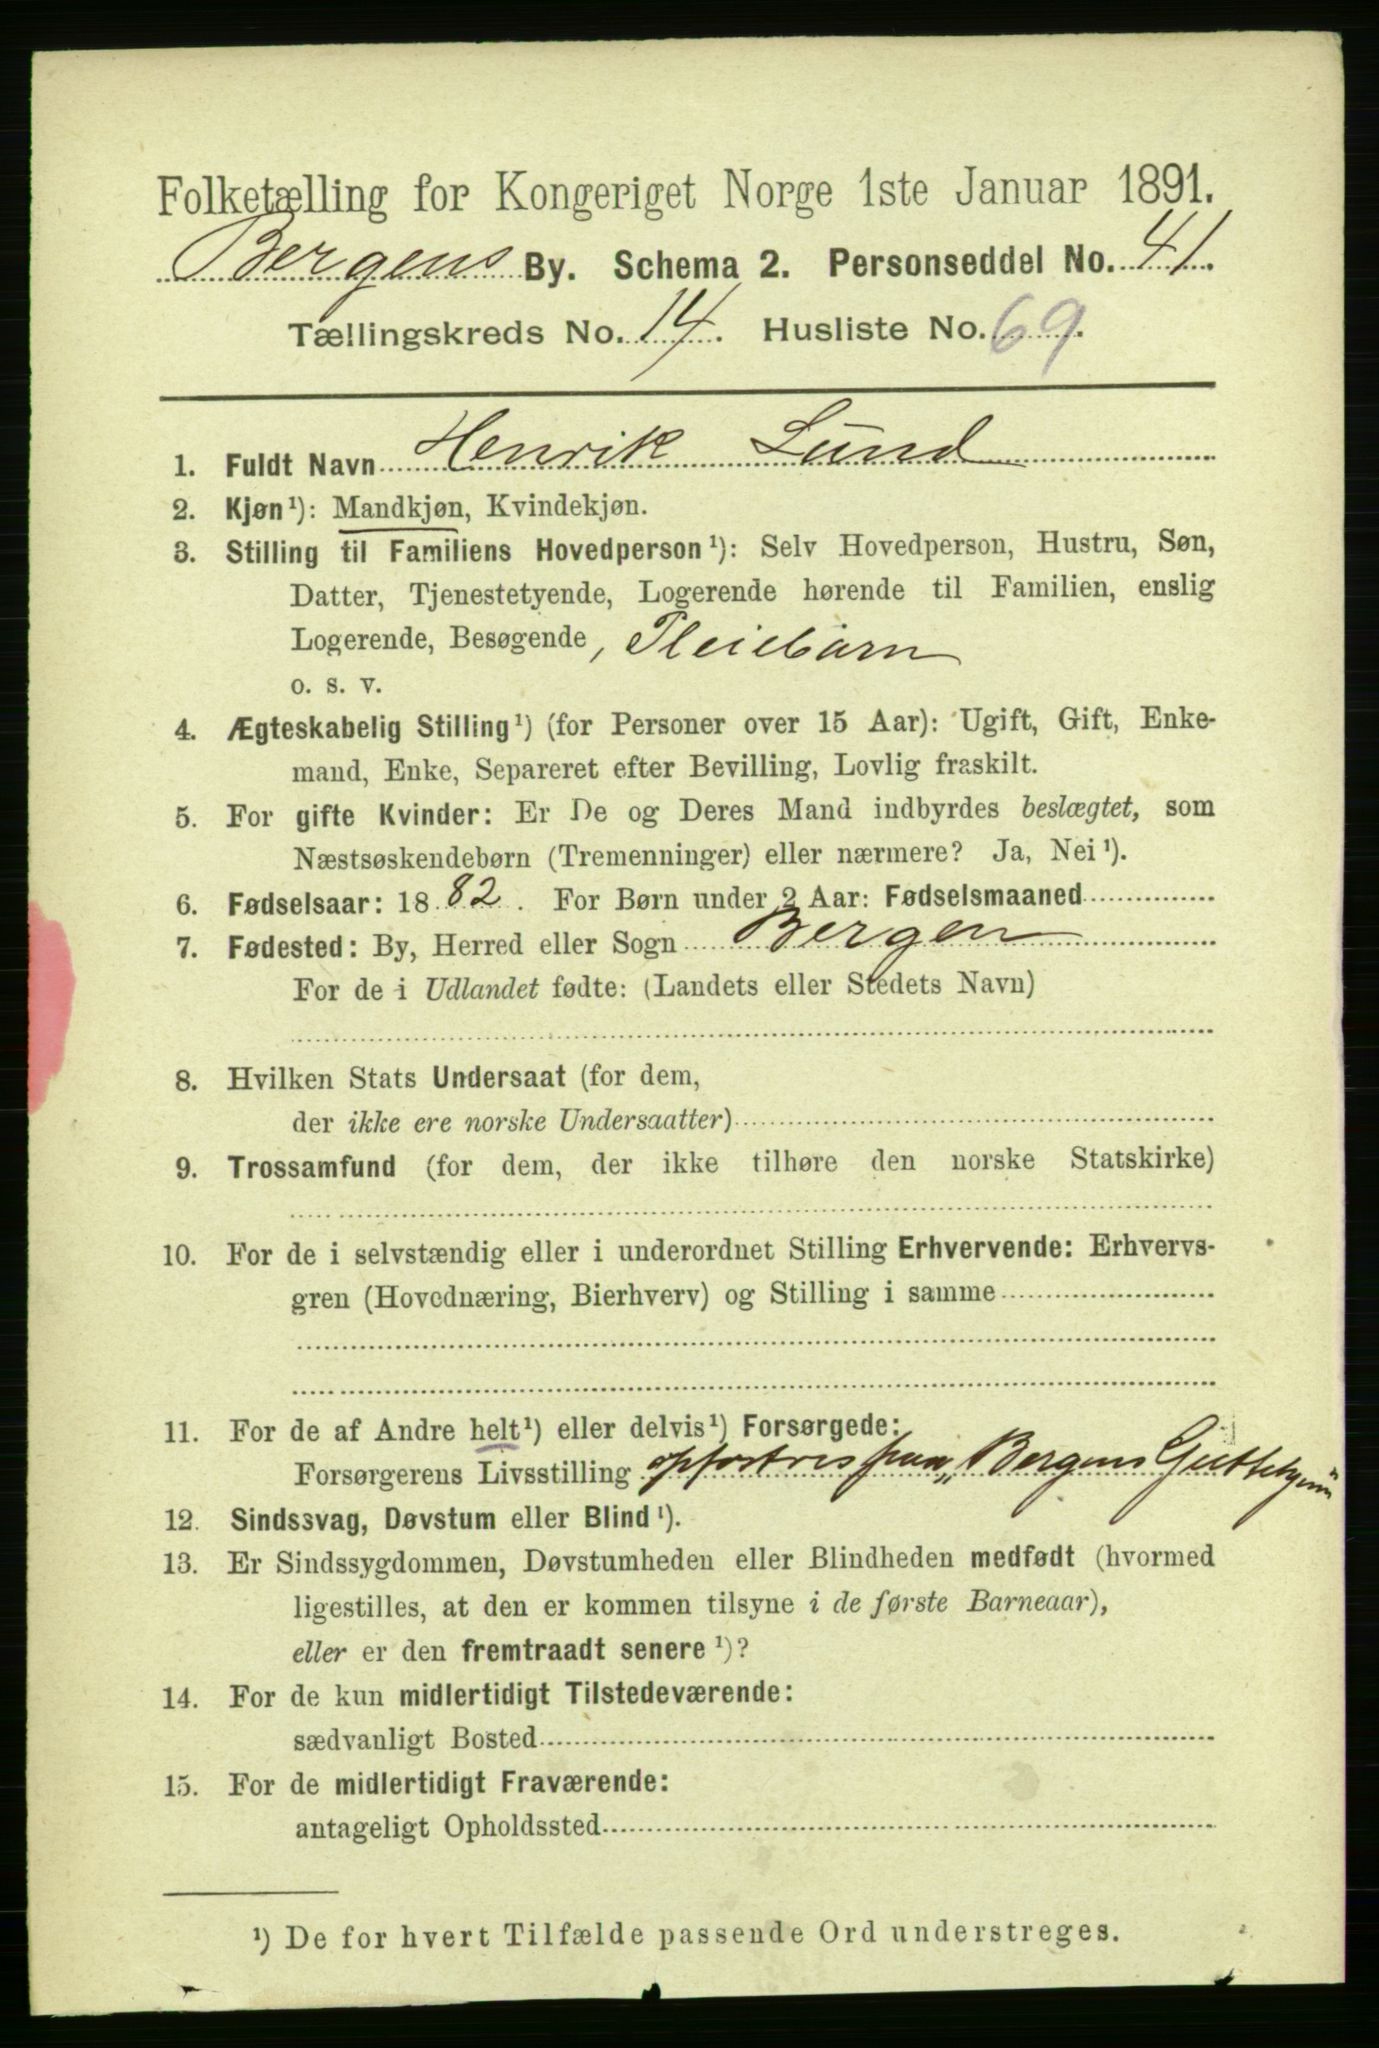 Folketælling for Kongeriget Norge 1ste Januar 1891.
Bergens By. Schema 2. Personseddel No. 41.
Tællingskreds No. 14. Husliste No. 69.
1. Fuldt Navn Henrik Lund
2. Kjøn¹): Mandkjøn, Kvindekjøn.
3. Stilling til Familiens Hovedperson¹): Selv Hovedperson, Hustru, Søn,
Datter, Tjenestetyende, Logerende hørende til Familien, enslig
Logerende, Besøgende, Pleiebarn
o. s. v.
4. Ægteskabelig Stilling¹) (for Personer over 15 Aar): Ugift, Gift, Enke-
mand, Enke, Separeret efter Bevilling, Lovlig fraskilt.
5. For gifte Kvinder: Er De og Deres Mand indbyrdes beslægtet, som
Næstsøskendebørn (Tremenninger) eller nærmere? Ja, Nei¹).
6. Fødselsaar: 1882. For Børn under 2 Aar: Fødselsmaaned
7. Fødested: By, Herred eller Sogn Bergen
For de i Udlandet fødte: (Landets eller Stedets Navn)
8. Hvilken Stats Undersaat (for dem,
der ikke ere norske Undersaatter)
9. Trossamfund (for dem, der ikke tilhøre den norske Statskirke)
10. For de i selvstændig eller i underordnet Stilling Erhvervende: Erhvervs-
gren (Hovednæring, Bierhverv) og Stilling i samme
11. For de af Andre helt¹) eller delvis¹) Forsørgede:
Forsørgerens Livsstilling opfostres paa „Bergens Guttehjem"
12. Sindssvag, Døvstum eller Blind¹).
13. Er Sindssygdommen, Døvstumheden eller Blindheden medfødt (hvormed
ligestilles, at den er kommen tilsyne i de første Barneaar),
eller er den fremtraadt senere¹)?
14. For de kun midlertidigt Tilstedeværende:
sædvanligt Bosted
15. For de midlertidigt Fraværende:
antageligt Opholdssted
¹) De for hvert Tilfælde passende Ord understreges.